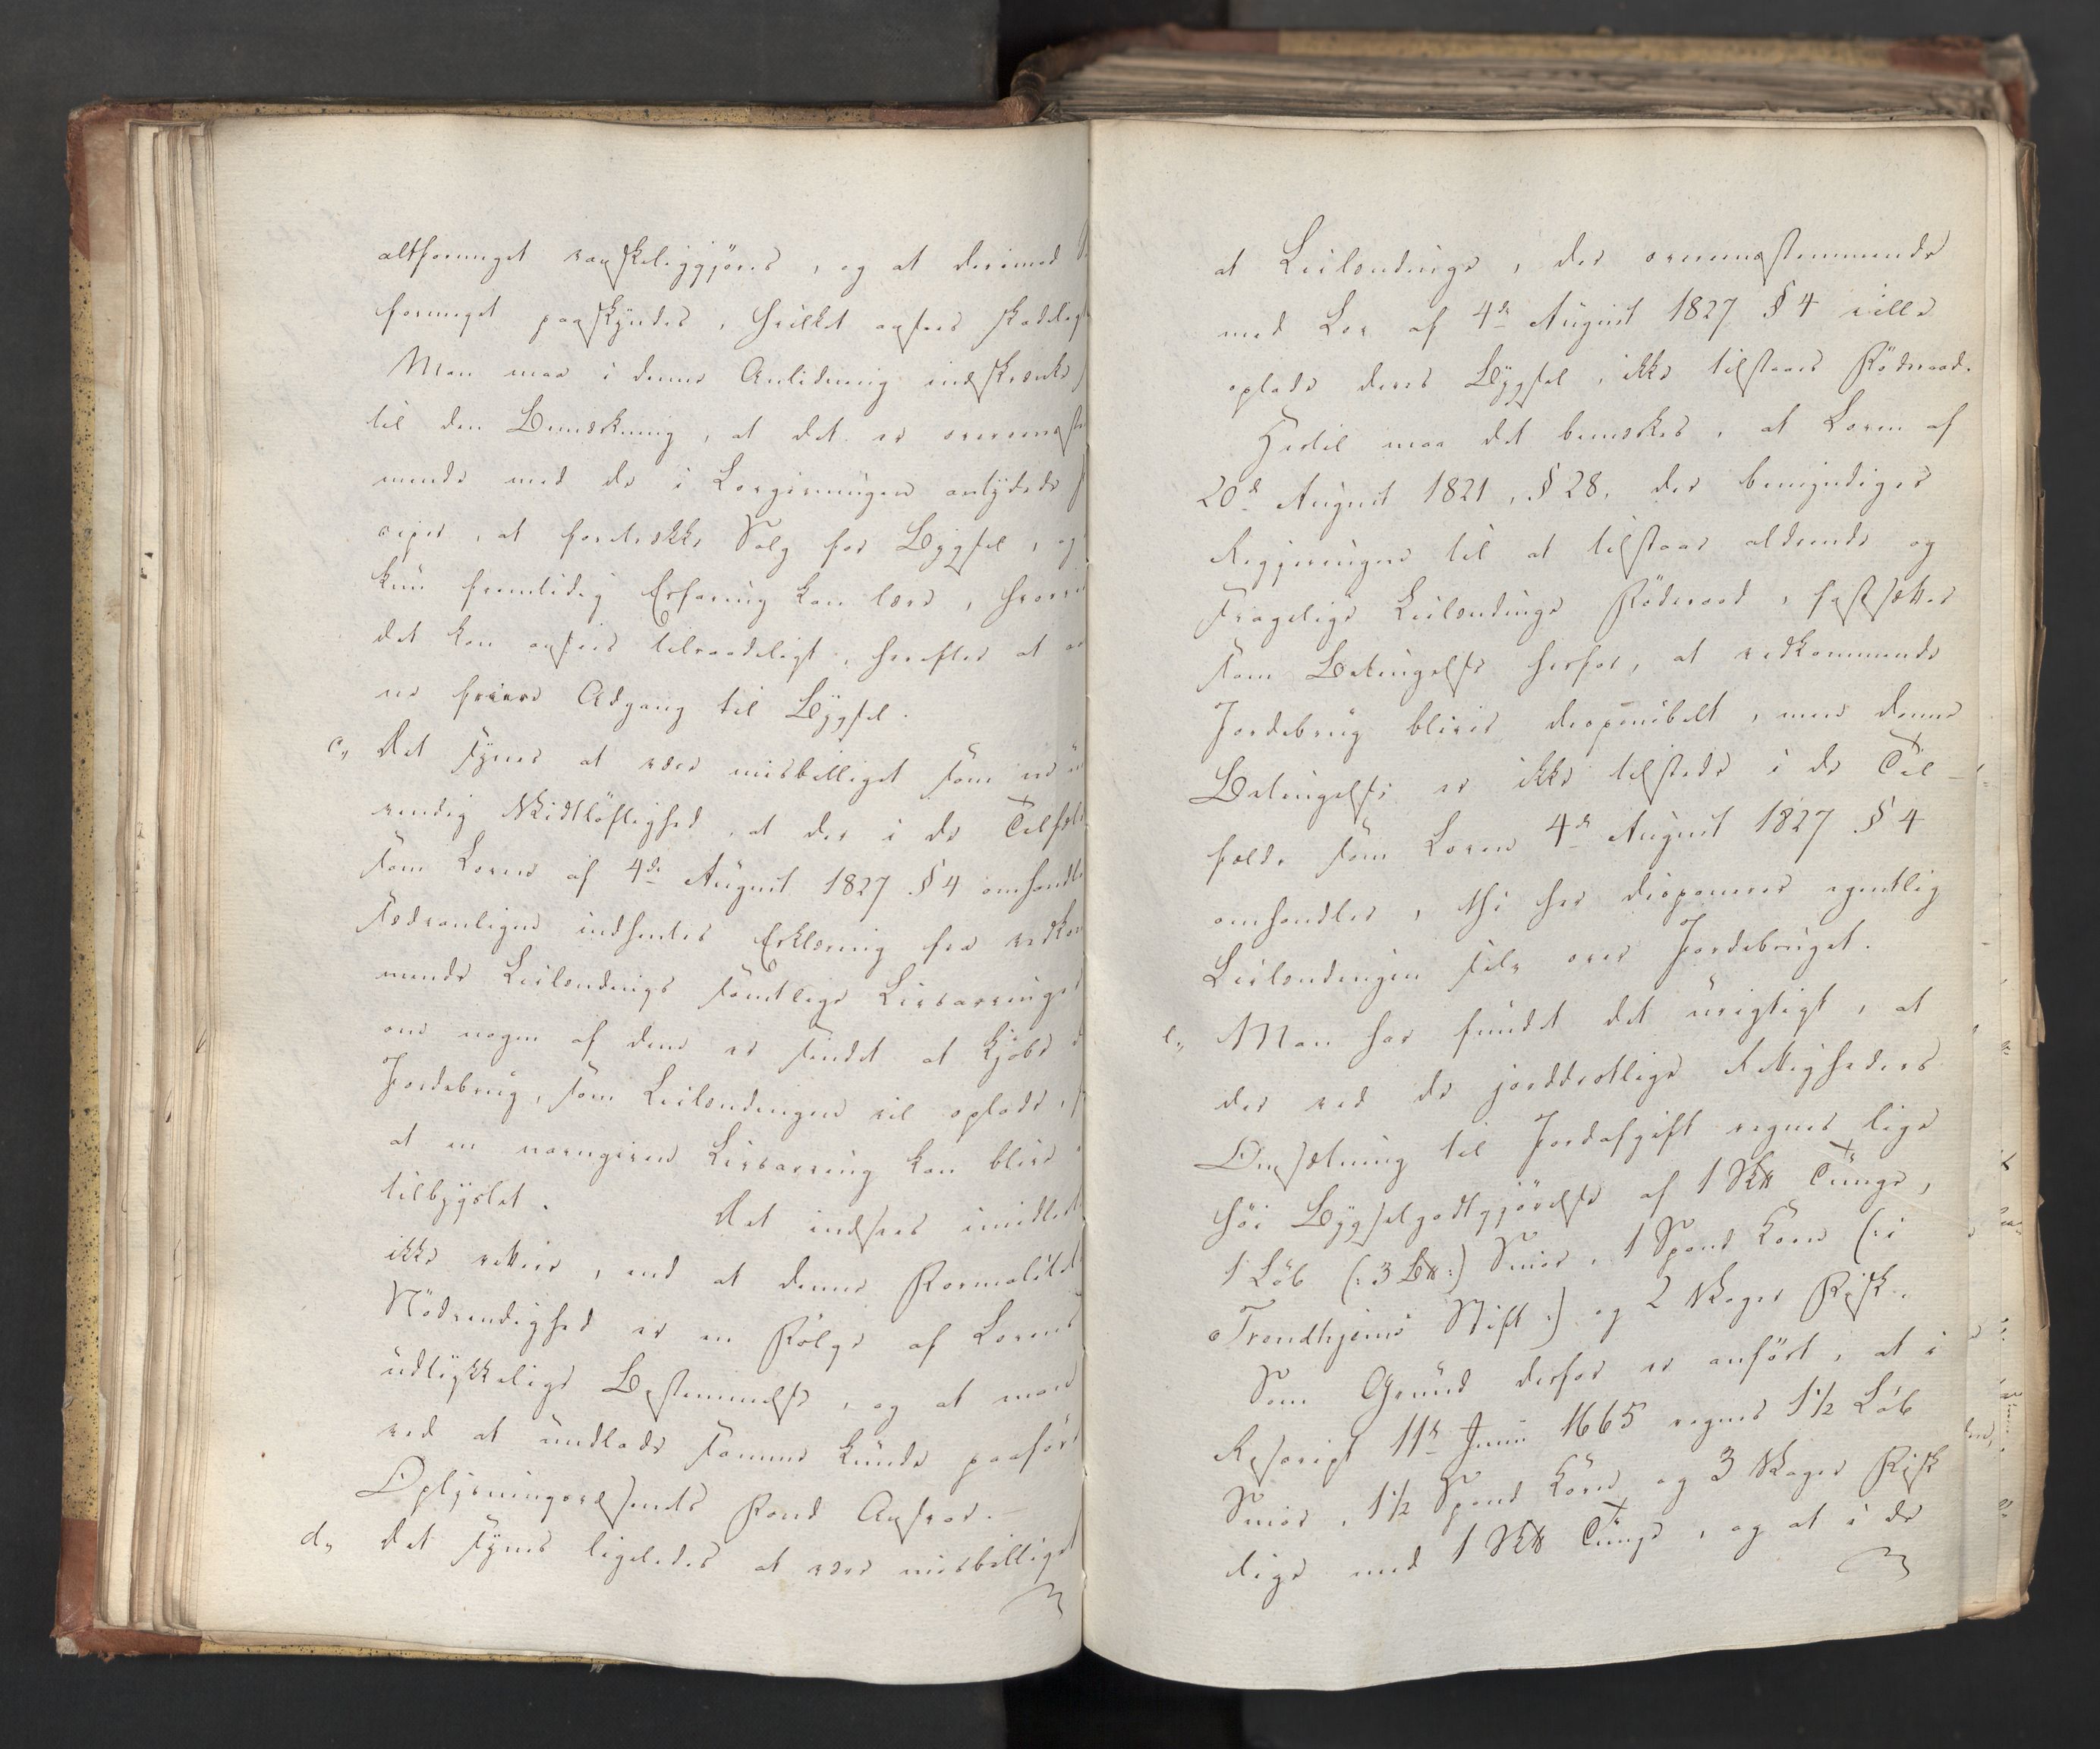 altformeget vanskeliggjøres, og at derimod
formeget paaskyndes, hvilket ansees skadeligt
Man maa i denne Anledning indskrænke
til den Bemærkning, at det er overeenste
mende med de i Lovgivningen antydede
ciper, at foretrække Salg for Bygsel, og
kun fremtidig Erfaring kan lære, hvorvi
det kan ansees tilraadeligt, herefter at
ne friere Adgang til Bygsel.
c,, Det synes at være misbilliget som en
vendig Vidtløftighed, at der i de Tilfæl
som Loven af 4de August 1827 § 4 omhandle
sædvanligen indhentes Erklæring fra vedkom
mende Leilændings samtlige Livsarvinger
om nogen af dem er sindet at kjøbe
Jordebrug, som Leilændingen vil oplade,
at en navngiven Livsarving kan blive
tilbygslet. Det indsees imidlert
ikke rettere, end at denne Formalitets
Nödvendighed er en Fölge af Lovens
udtrykkelige Bestemmelse, og at man
ved at undlade samme kunde paaføre
Oplysningsvæsenets Fond Ansvar. —
d,, Det synes ligeledes at være misbilliget
at Leilændinge, der overeensstemmende
med Lov af 4de August 1827 § 4 ville
oplade deres Bygsel, ikke tilstaaes Födevaad.
Hertil maa det bemærkes, at Loven af
20de August 1821, § 28, der bemyndiger
Regjeringen til at tilstaae aldrende og
svagelige Leilændinge Föderaad, fastsætter
som Betingelse herfor, at vedkommende
Jordebrug bliver disponibelt, men denne
Betingelse er ikke tilstede i de Til-
fælde som Loven 4de August 1827 § 4
omhandler, thi her disponerer egentlig
Leilændingen selv over Jordebruget.
e,, Man har fundet det urigtigt, at
der ved de jorddrotlige Rettigheders
Omsætning til Jordafgift regnes lige
høi Bygselgodtgjørelse af 1 Sk℔ Tunge,
1 Löb (: 3 B℔ :) Smör, 1 Spand Korn (: i
Trondhjems Stift :) og 2 Vaager Fisk.
Som Grund derfor er anført, at i
Rescript 11te Junii 1665 regnes 1½ Löb
Smör, 1½ Spand Korn og 3 Vaager Fisk
lige med 1 Sk℔ Tunge, og at i de